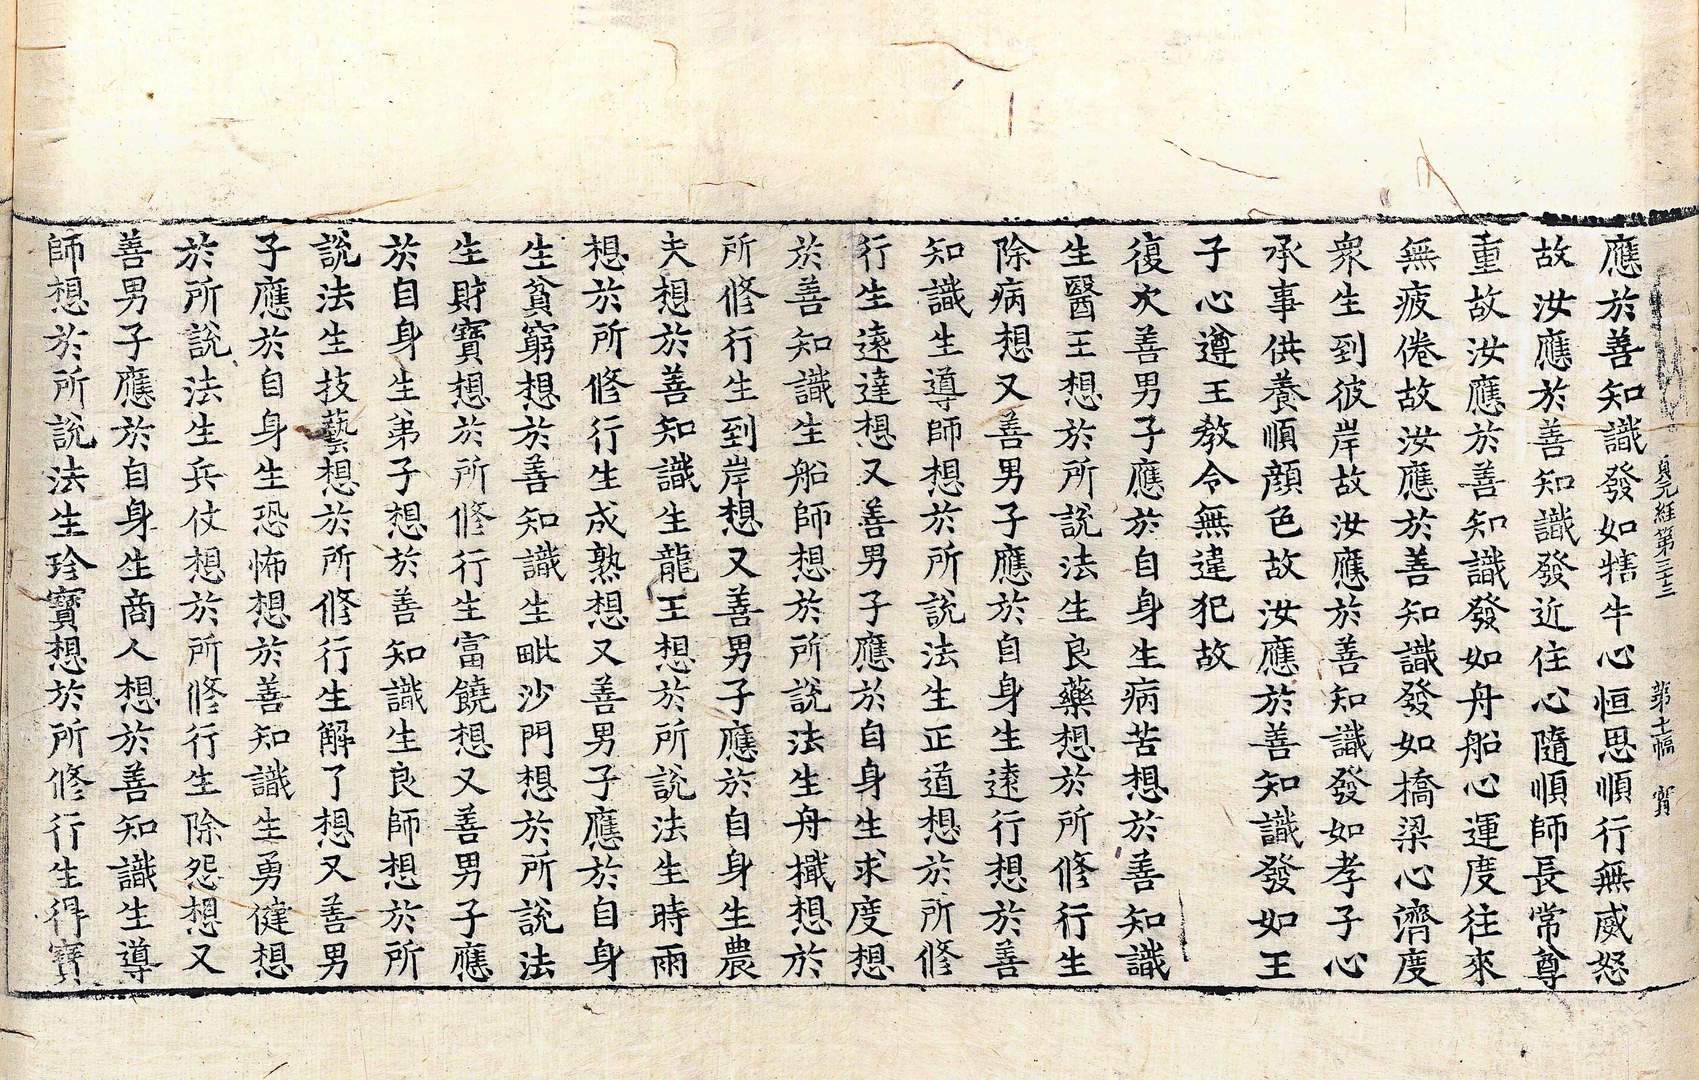 貞元經第三十三　第十幅　寳
應於善知識發如犗牛心恒思順行無威怒
故汝應於善知識發近住心隨順師長常尊
重故汝應於善知識發如舟船心運度往來
無疲倦故汝應於善知識發如橋梁心濟度
衆生到彼岸故汝應於善知識發如孝子心
承事供養順顔色故汝應於善知識發如王
子心遵王教令無違犯故
復次善男子應於自身生病苦想於善知識
生醫王想於所說法生良藥想於所修行生
除病想又善男子應於自身生遠行想於善
知識生導師想於所說法生正道想於所修
行生遠達想又善男子應於自身生求度想
於善知識生船師想於所說法生舟檝想於
所修行生到岸想又善男子應於自身生農
夫想於善知識生龍王想於所說法生時雨
想於所修行生成熟想又善男子應於自身
生貧窮想於善知識生毗沙門想於所說法
生財寶想於所修行生富饒想又善男子應
於自身生弟子想於善知識生良師想於所
說法生技藝想於所修行生解了想又善男
子應於自身生恐怖想於善知識生勇健想
於所說法生兵仗想於所修行生除怨想又
善男子應於自身生商人想於善知識生導
師想於所說法生珍寶想於所修行生得寶